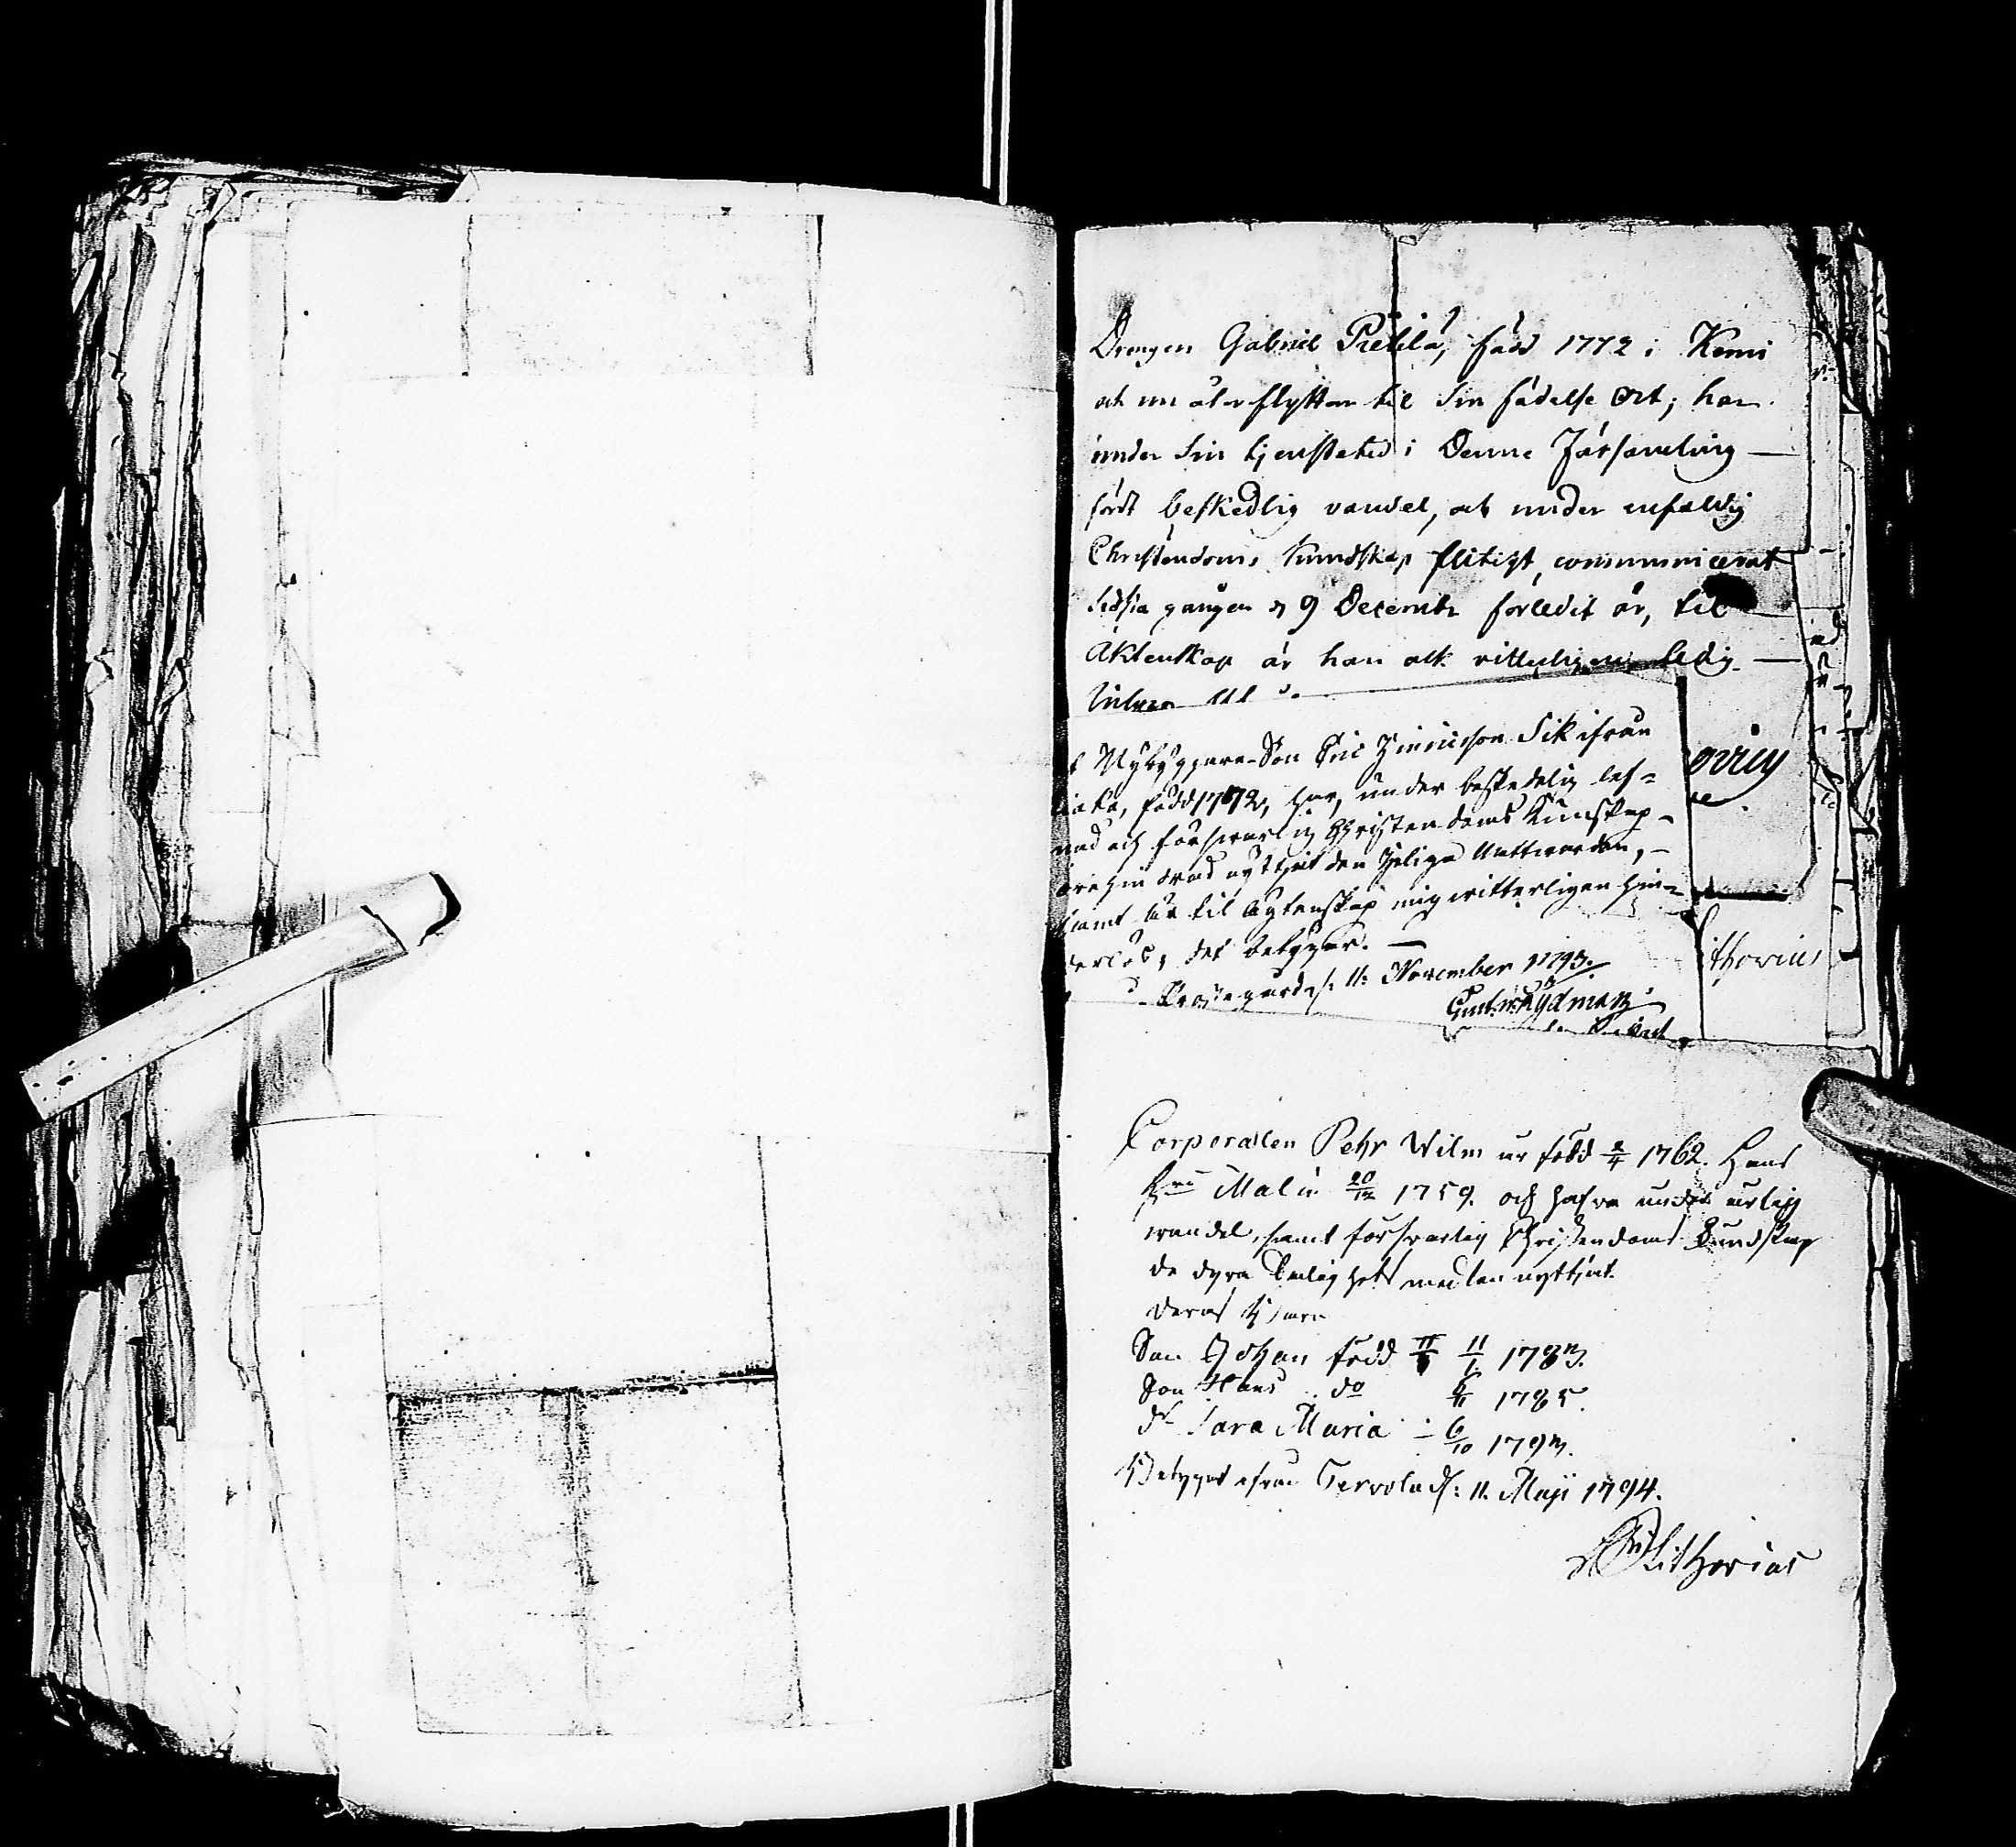 Drengen Gabriel Pietilä, född 1772 i Kemi
och nu åter flyttar til sin födelse Ort; har
under sin tjenstetid i Denne Församling
fört beskedlig vandel, och under enfaldig
Christendoms kundskap flitigt, communicerat
sidsta gången d 9 Decembr förledit år, til
Äktenskap är han ock vitterligen ledig
Nybyggare-Son Eric Hinricsson Sik ifrån
född 1772, har, under beskedelig lef-
nad och försvarlig Christendoms Kunskap
nyttjat den Heliga Nattvarden,
samt är til Ägtenskap mig witterligen hin-
derlös, det betygar.
11. November 1793.
orin
ithorius
Corporalen Pehr Wilm är född 2/4 1762. Hans
Hru Malin 20/12 1759. och hafva under ärlig
wandel, samt försvarlig Christendoms Kundskap
de dyra Salighets medlen nyttjat.
Deras Barn
Son Johan född 11/1 1783.
Son Hans do 1785.
dr Sara Maria 6/10 1793.
Betygat ifrån Tervola d: 11. Maji 1794.
Lithovius